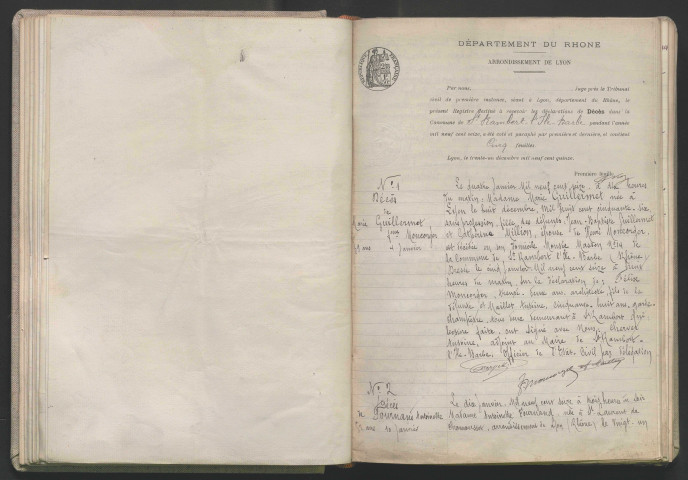 DÉPARTEMENT DU RHONE
ARRONDISSEMENT DE LYON
Par nous, Juge près le Tribunal
civil de première instance, séant à Lyon, département du Rhône, le
présent Registre destiné à recevoir les déclarations de Décès dans la
Commune de St Rambert l'Ile-Barbe pendant l'année
mil neuf cent seize, a été coté et paraphé par première et dernière, et contient
Cinq feuillets.
Lyon, le trente-un décembre mil neuf cent quinze.
Première feuille
N° 1
Décès
de
Marie Guillermet
femme Moncorger
ans 4 Janvier
Le quatre Janvier Mil neuf cent seize à dix heures
du matin. Madame Marie Guillermet née à
Lyon le huit décembre Mil huit cent cinquante-six
sans profession, fille des défunts Jean-Baptiste Guillermet
et Million, épouse de Henri Moncorger,
et décédée en son domicile Montée
la Commune de St Rambert l'Ile-Barbe (Rhône)
Mil neuf cent seize à deux
heures du matin. Sur la déclaration de: Félix
Moncorger, ans, fils de la
défunte et Maillet Antoine, cinquante-huit ans, garde-
champêtre, demeurant à St Rambert qui
lecture faite, ont signé avec Nous, Chervet
Antoine, adjoint au Maire de St Rambert-
l'Ile-Barbe, Officier de l'Etat-Civil par délégation
N° 2
Décès
de Antoinette
ans 10 Janvier
Le dix janvier Mil neuf cent seize à heures du soir
Madame Antoinette née à St Laurent de
Chamousset, arrondissement de Lyon (Rhône) le vingt-un